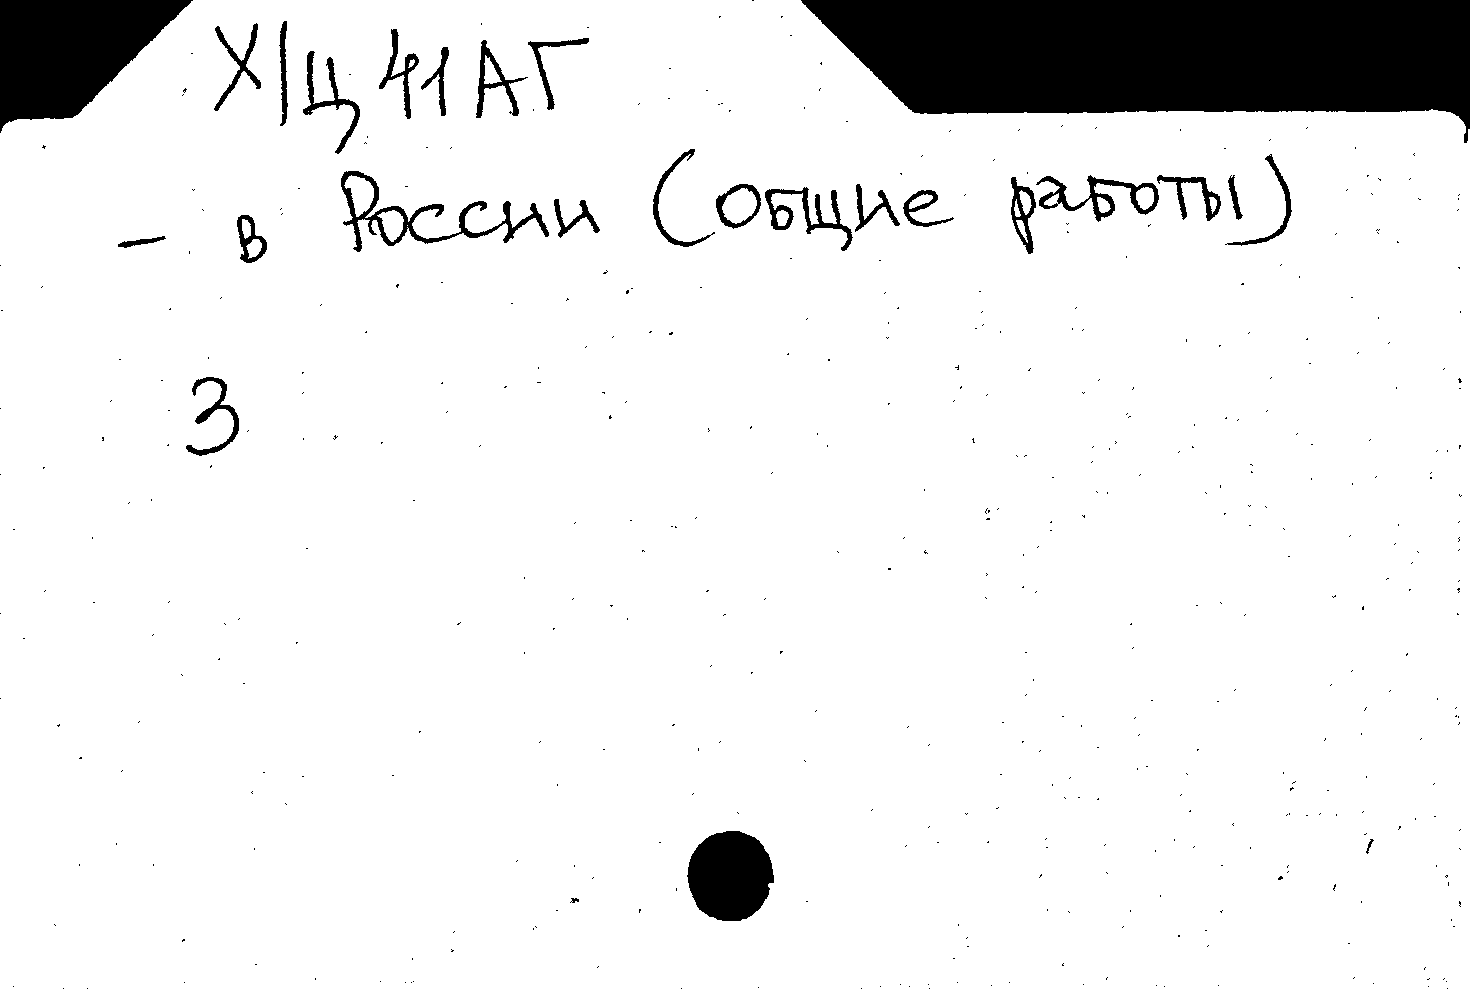 Х/Ц 41 АГ
– в России (общие работы)
3